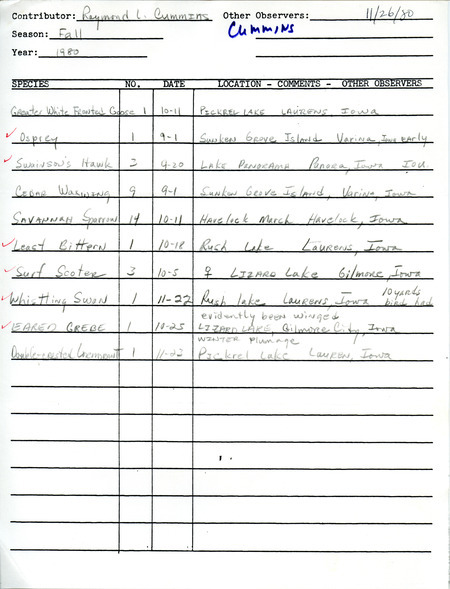 Contributor: Raymond L. Cummins Other Observers: 11/26/80
Season: Fall Cummins
Year: 1980
SPECIES NO. DATE LOCATION - COMMENTS - OTHER OBSERVERS
Greater White Fronted Goose 1 10-11 Pickrel Lake Laurens, Iowa
✓ Osprey 1 9-1 Sunken Grove Island Varina, Iowa Early
✓ Swainson's Hawk 2 9-20 Lake Panorama Panora, Iowa Iou.
Cedar Waxwing 9 9-1 Sunken Grove Island, Varina, Iowa
Savannah Sparrow 14 10-11 Havelock Marsh Havelock, Iowa
✓ Least Bittern 1 10-18 Rush Lake Laurens, Iowa
✓ Surf Scoter 3 10-5 ♀ Lizard Lake Gilmore, Iowa
✓ Whistling Swan 1 11-22 Rush lake Laurens, Iowa 10 yards bird had
evidently been winged
✓ Eared Grebe 1 10-25 Lizard Lake, Gilmore City, Iowa
Winter Plumage
Double-crested Cormorant 1 11-22 Pickrel Lake Lauren, Iowa